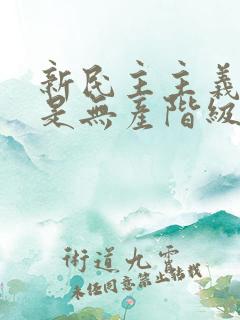 新民主主義
是無產階級
術道九霄
未經同意禁止轉載